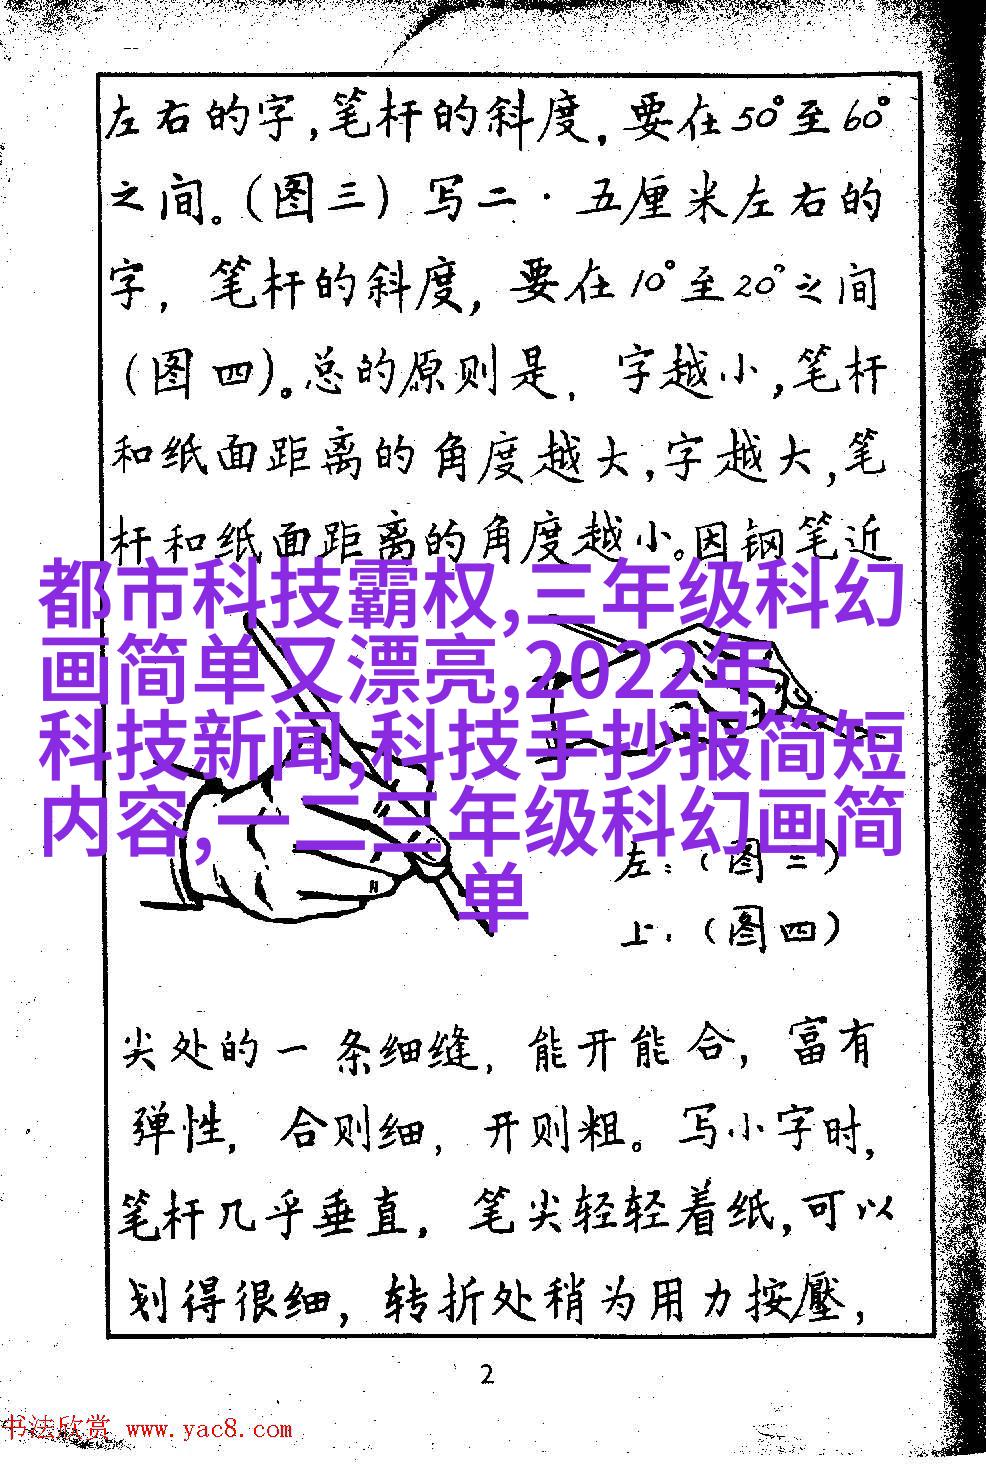 左右的字,笔杆的斜度,要在50°至60°
之间。(图三)写二·五厘米左右的
字,笔杆的斜度,要在10°至20°之间
(图四)。总的原则是,字越小,笔杆
和纸面距离的角度越大,字越大,笔
杆和纸面距离的角度越小。因钢笔近
都市科技霸权,三年级科幻
画简单又漂亮,2022年
科技新闻,科技手抄报简短
内容,一二三年级科幻画简
单
左:(图三)
上:(图四)
尖处的一条细缝,能开能合,富有
弹性,合则细,开则粗。写小字时,
笔杆几乎垂直,笔尖轻轻着纸,可以
划得很细,转折处稍为用力按壓,
2
书法欣赏 www.yac8.com